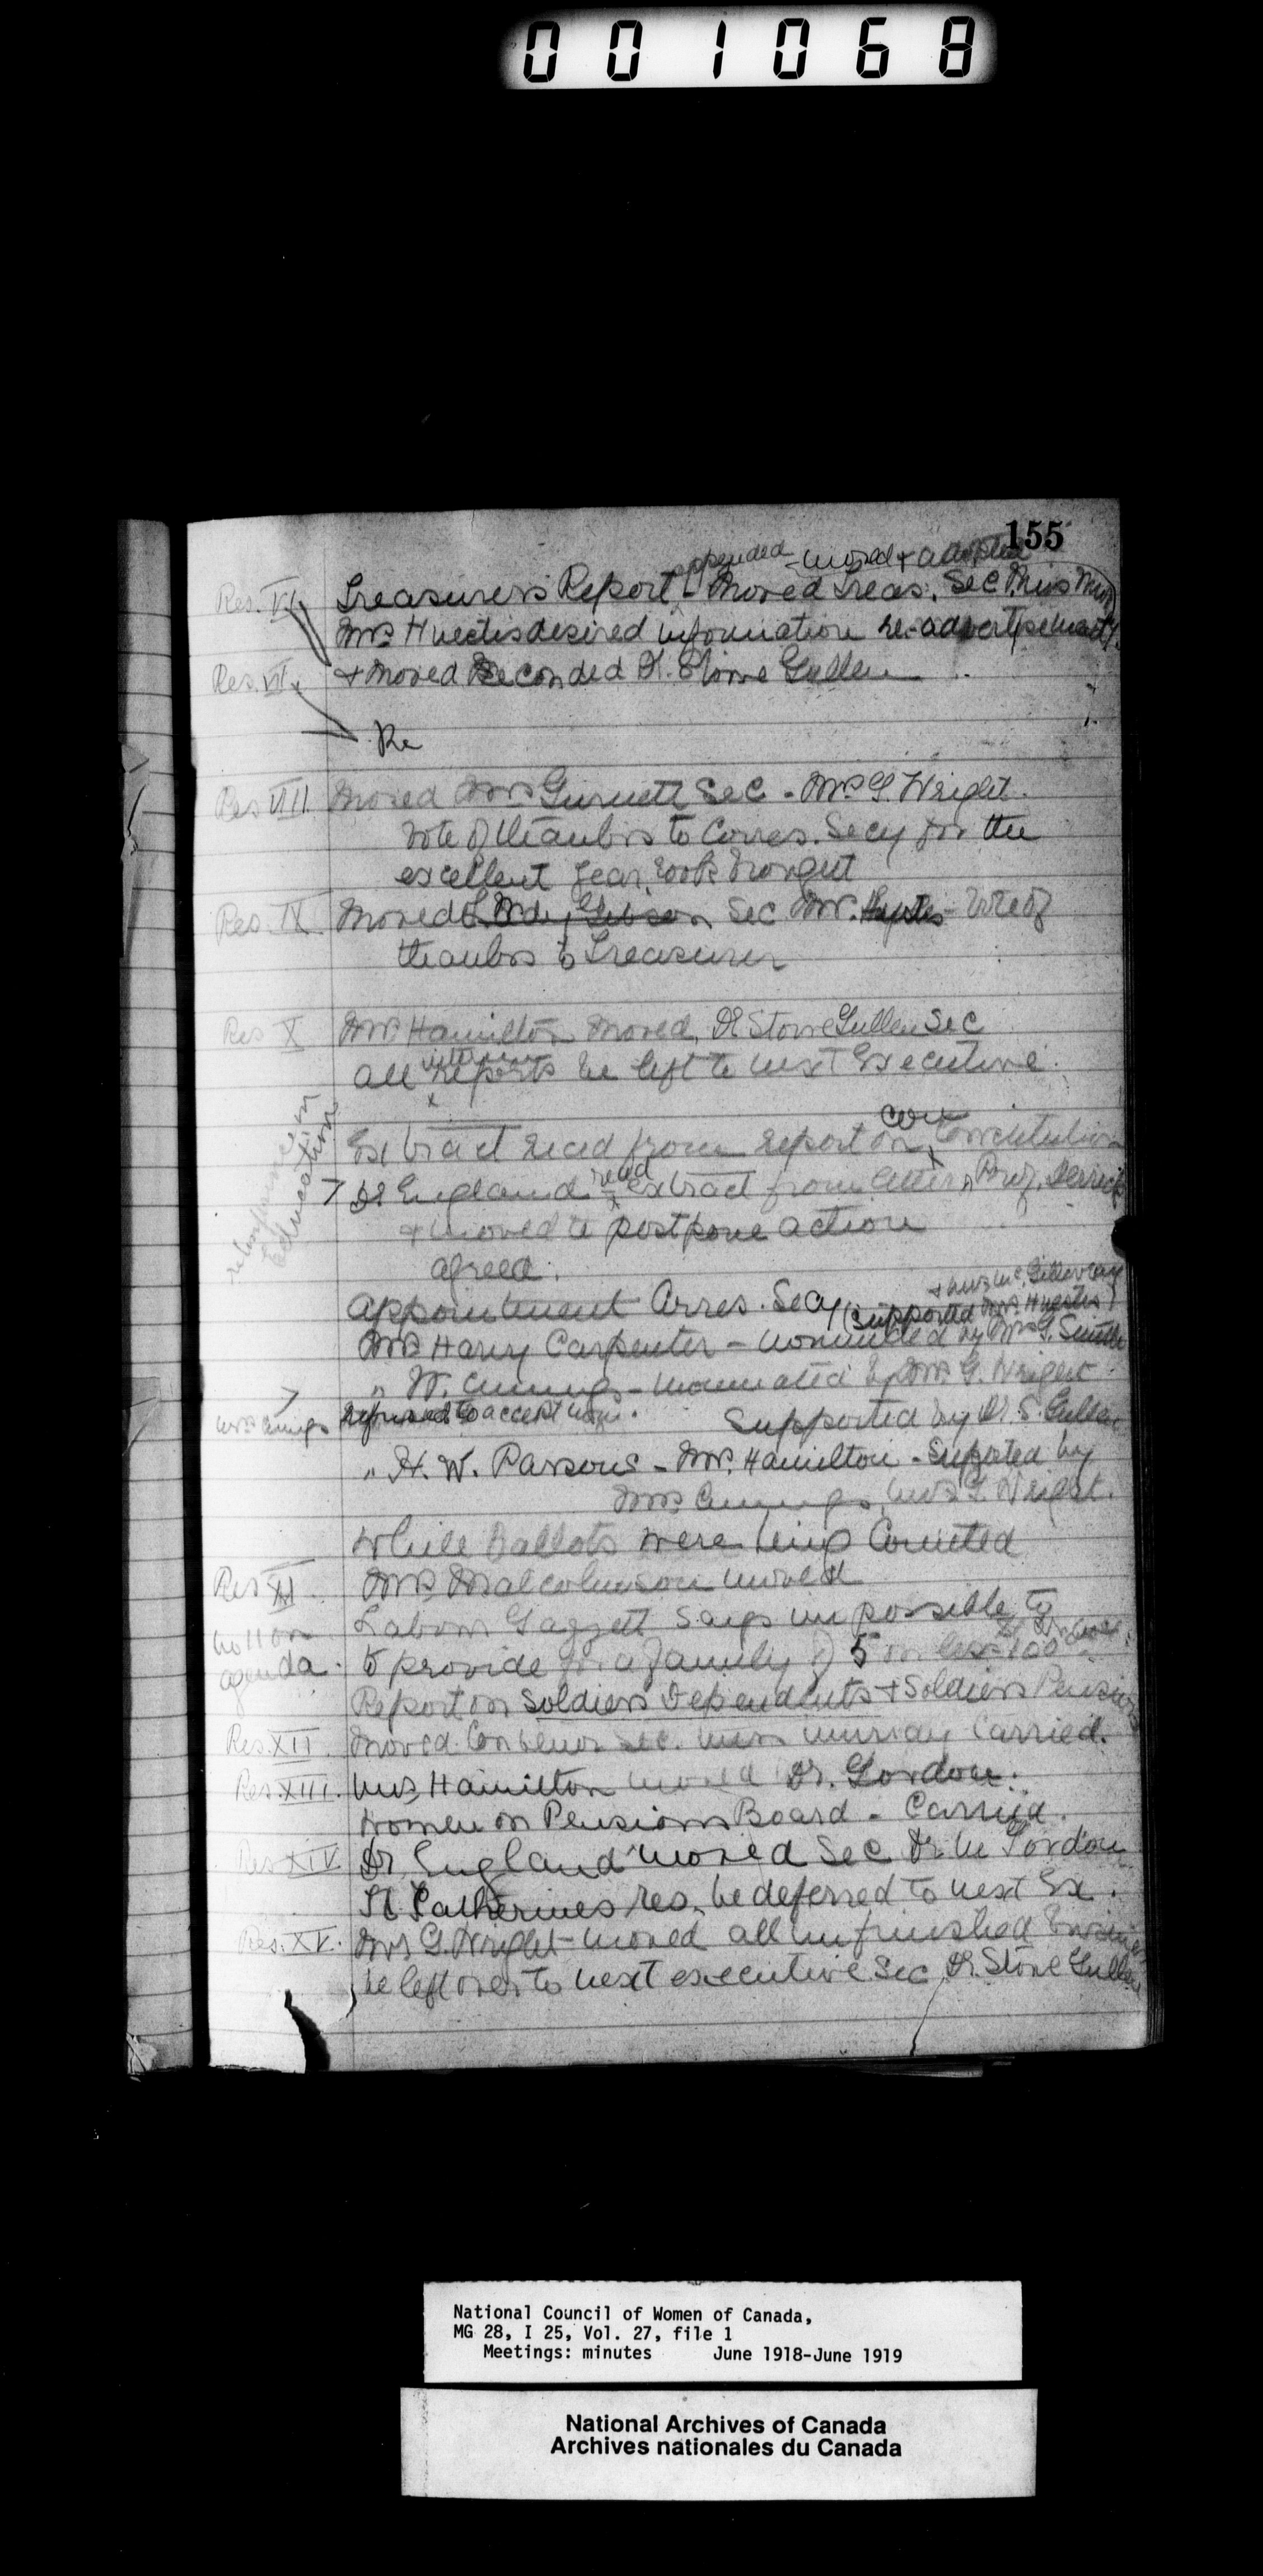 001068
155
appended - moved & adopted
Res. VI. Treasurers Report - Moved Treas. Sec. Miss
Mrs. Huestis desired information re-advertisement
Res. VII. & moved Seconded Dr. Stowe Gullen
Re
Res VIII. Moved Mrs Gurnett Sec - Mrs. G. Wright.
Vote of thanks to Corres. Secy for the
excellent Year Book brought
Res. IX Moved Lady Gibson Sec Mrs. Huestis - Vote of
thanks to Treasurer
Res X Mrs. Hamilton Moved, Dr Stowe Gullen Sec
All reports be left to next Executive.
Education
con
Extract read from report on Constitution
Dr England read extract from letter Prof. Derrick
& moved to postpone action
agreed.
& Mrs. Mc.
Appointment Corres. Secy (Supported Mrs. Huestis)
Mrs Harry Carpenter - nominated by Mrs. G. Smith
" W. Cumings - nominated by Mrs. G. Wright
Mrs Cumings refused to accept nom. Supported by Dr. S. Gullen
" H. W. Parsons - Mrs. Hamilton - Suported by
Mrs Cumings, Mrs. G. Wright.
While Ballots were being Counted
Res XI Mrs. Malcolmson moved
No 11 on Labour Gazzett says impossible to
agenda. to provide for a family of 5 on less 100
Report on Soldiers Dependents & Soldiers Pensions
Res. XII Moved Convenor Sec. Miss Murray Carried.
Res. XIII. Mrs. Hamilton moved Dr. Gordon.
Women on Pensions Board - Carried.
Res XIV Dr. England moved Sec Dr. M Gordon
St Catherines res. be deferred to next Ex.
Res. XV. Mrs G. Wright - moved all unfinished business
be left over to next executive Sec, Dr. Stowe Gullen
National Council of Women of Canada,
MG 28, I 25, Vol. 27, file 1
Meetings: minutes June 1918-June 1919
National Archives of Canada
Archives nationales du Canada